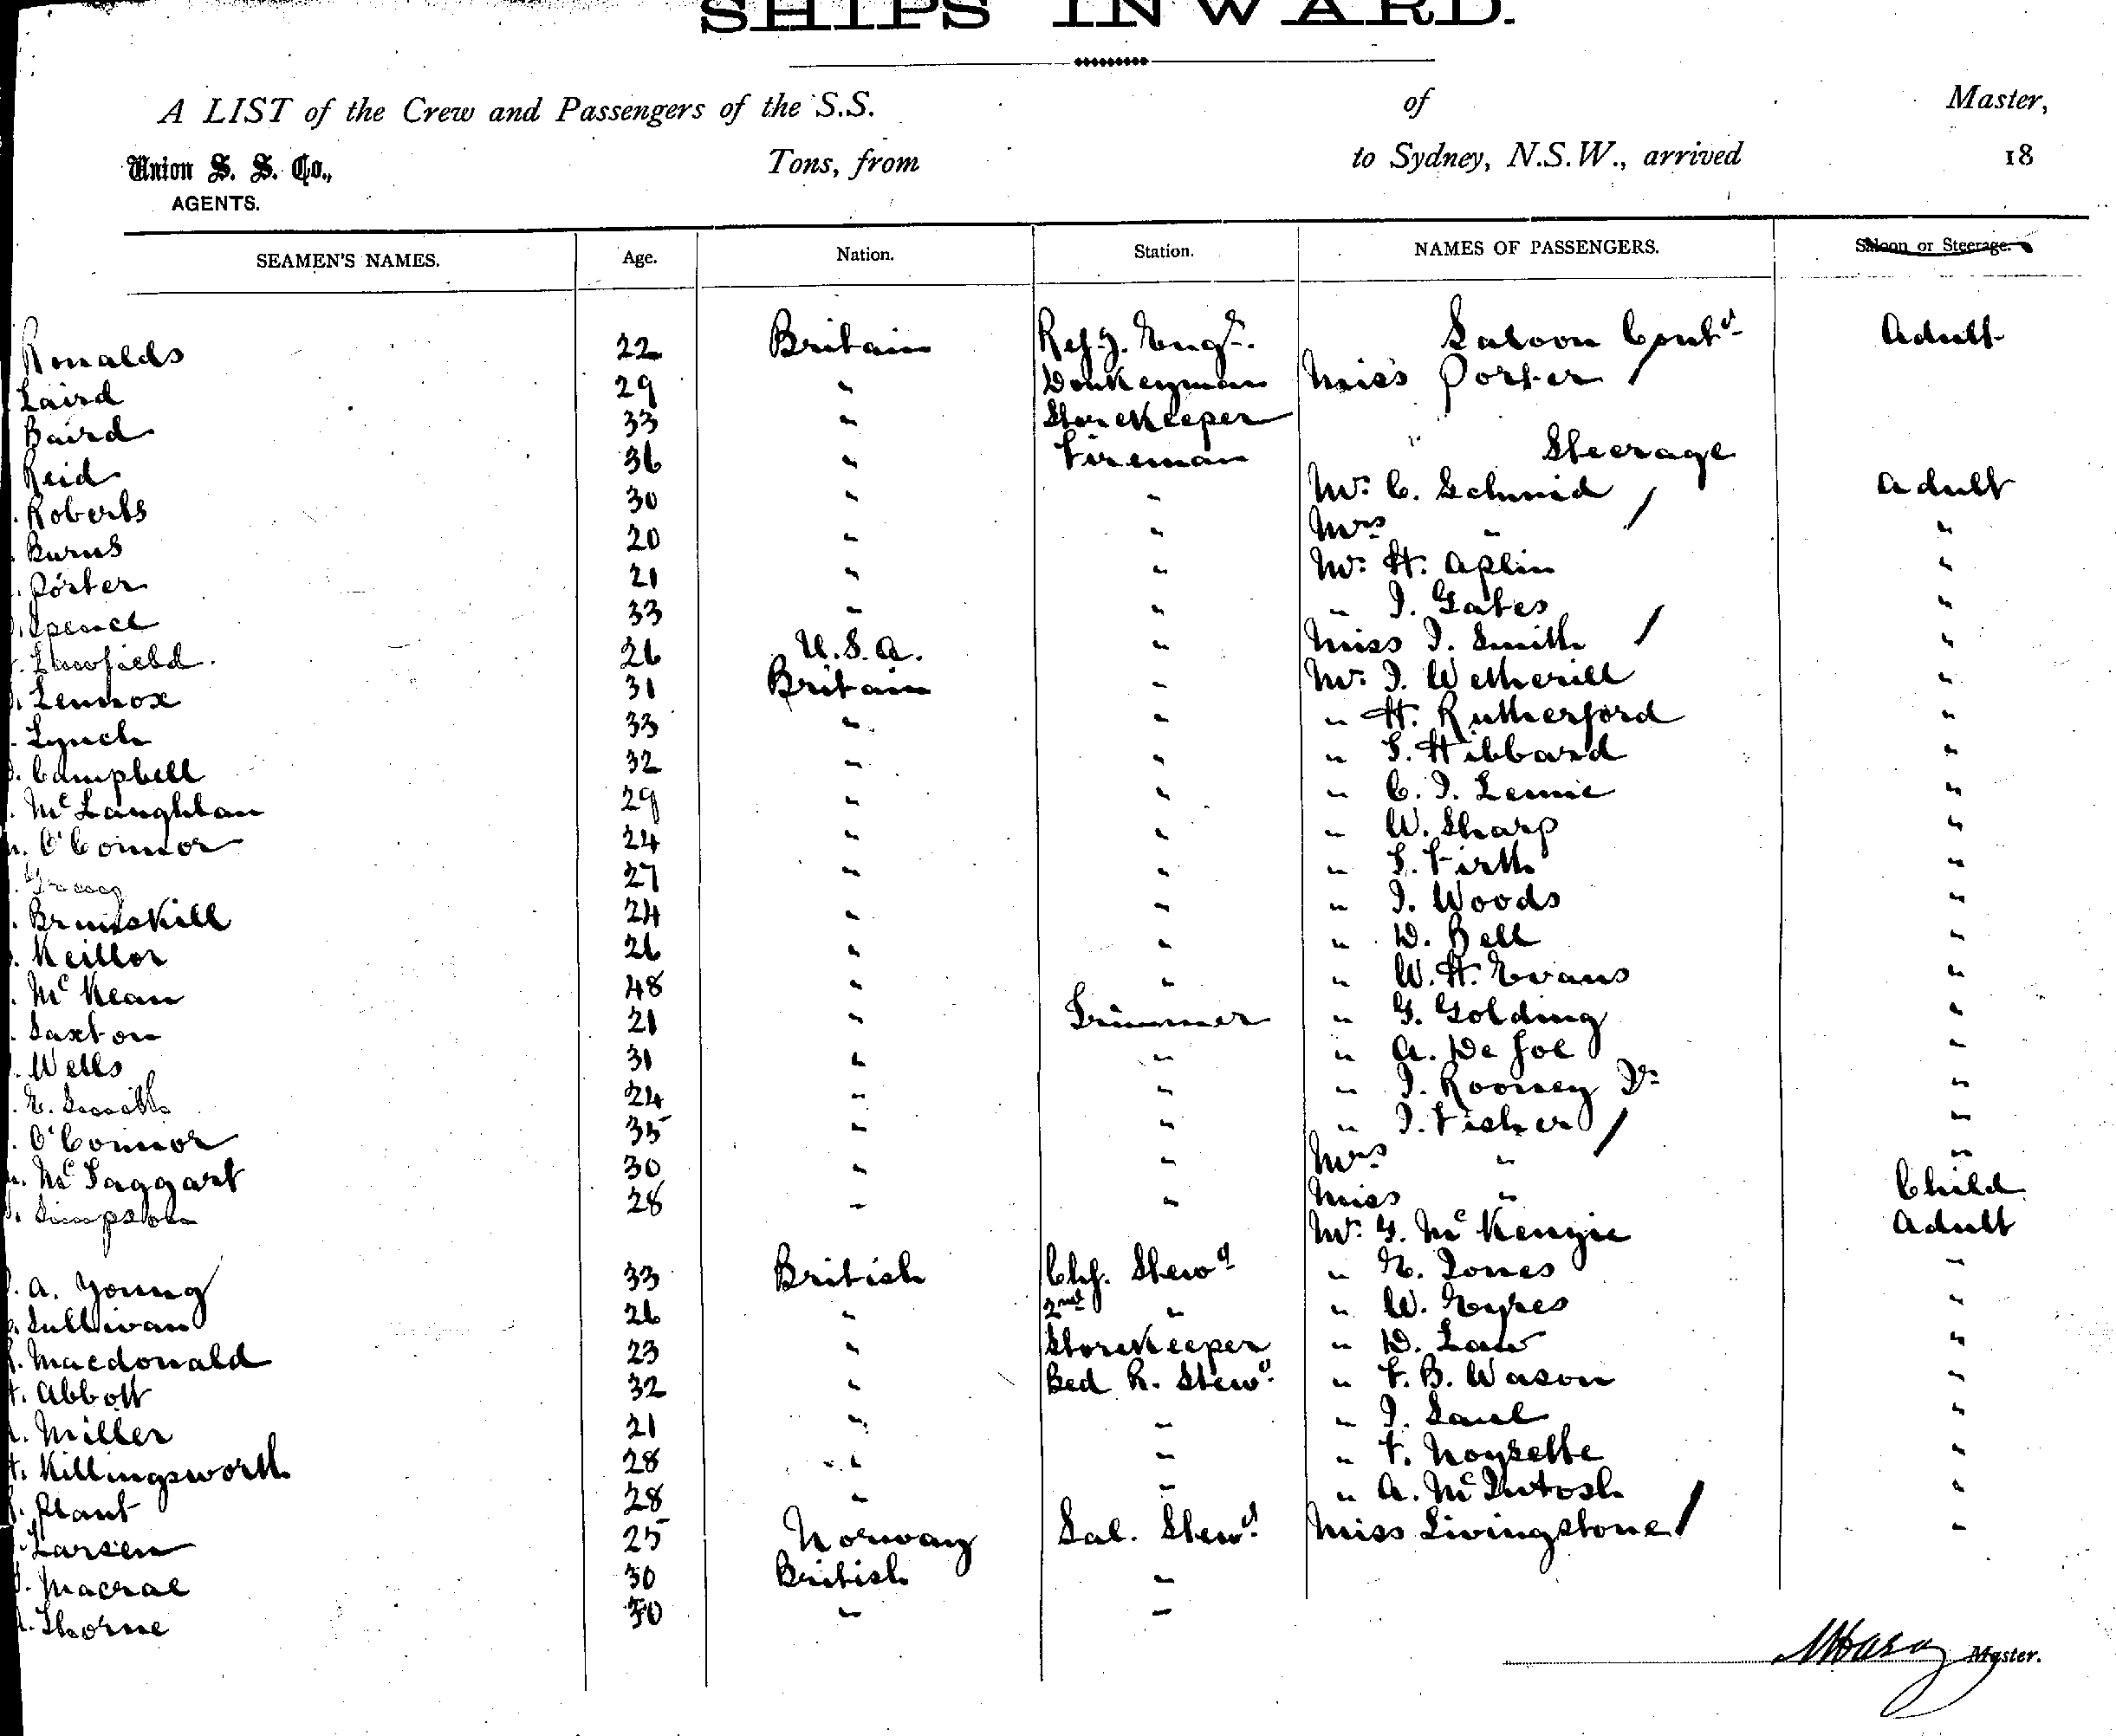 SHIPS INWARD.
A LIST of the Crew and Passengers of the S.S. of Master,
Union S. S. Co., Tons, from to Sydney, N.S.W., arrived 18
AGENTS.
SEAMEN'S NAMES. Age. Nation. Station. NAMES OF PASSENGERS. Saloon or Steerage.
Ronalds 22 Britain Refg. Engr. Saloon Contd Adult
Laird 29 " Donkeyman Miss Porter /
Baird 33 " Storekeeper
Reid 36 " Fireman Steerage
Roberts 30 " " Mr. C. Schmid / Adult
Burns 20 " " Mrs " "
Porter 21 " " Mr. H. Aplin "
Spence 33 " " " J. Gates "
26 U.S.A. " Miss J. Smith / "
Lennox 31 Britain " Mr. J. Wetherill "
Lynch 33 " " " H. Rutherford "
Campbell 32 " " " S. Hibbard "
McLaughlan 29 " " " C. J. Lennie "
O'Connor 24 " " " W. Sharp "
27 " " " S. Firth "
Brunskill 24 " " " J. Woods "
Keillor 26 " " " D. Bell "
McKean 48 " " " W. H. Evans "
Saxton 21 " Trimmer " G. Golding "
Wells 31 " " " A. De Joe "
E. Smith 24 " " " J. Rooney Jr "
O'Connor 35 " " " J. Fisher / "
McTaggart 30 " " Mrs " "
Simpson 28 " " Miss " Child
Mr. G. McKenzie Adult
A. Young 33 British Chf. Stewd " E. Jones "
Sullivan 26 " 2nd " " W. Eyres "
Macdonald 23 " Storekeeper " D. Law "
Abbott 32 " Bed R. Stewd. " F. B. Wason "
Miller 21 " " " J. Saul "
Killingsworth 28 " " " F. Noyzette "
Plant 28 " " " A. McIntosh "
Larsen 25 Norway Sal. Stewd. Miss Livingstone / "
Macrae 30 British "
Thorne 30 " "
Master.